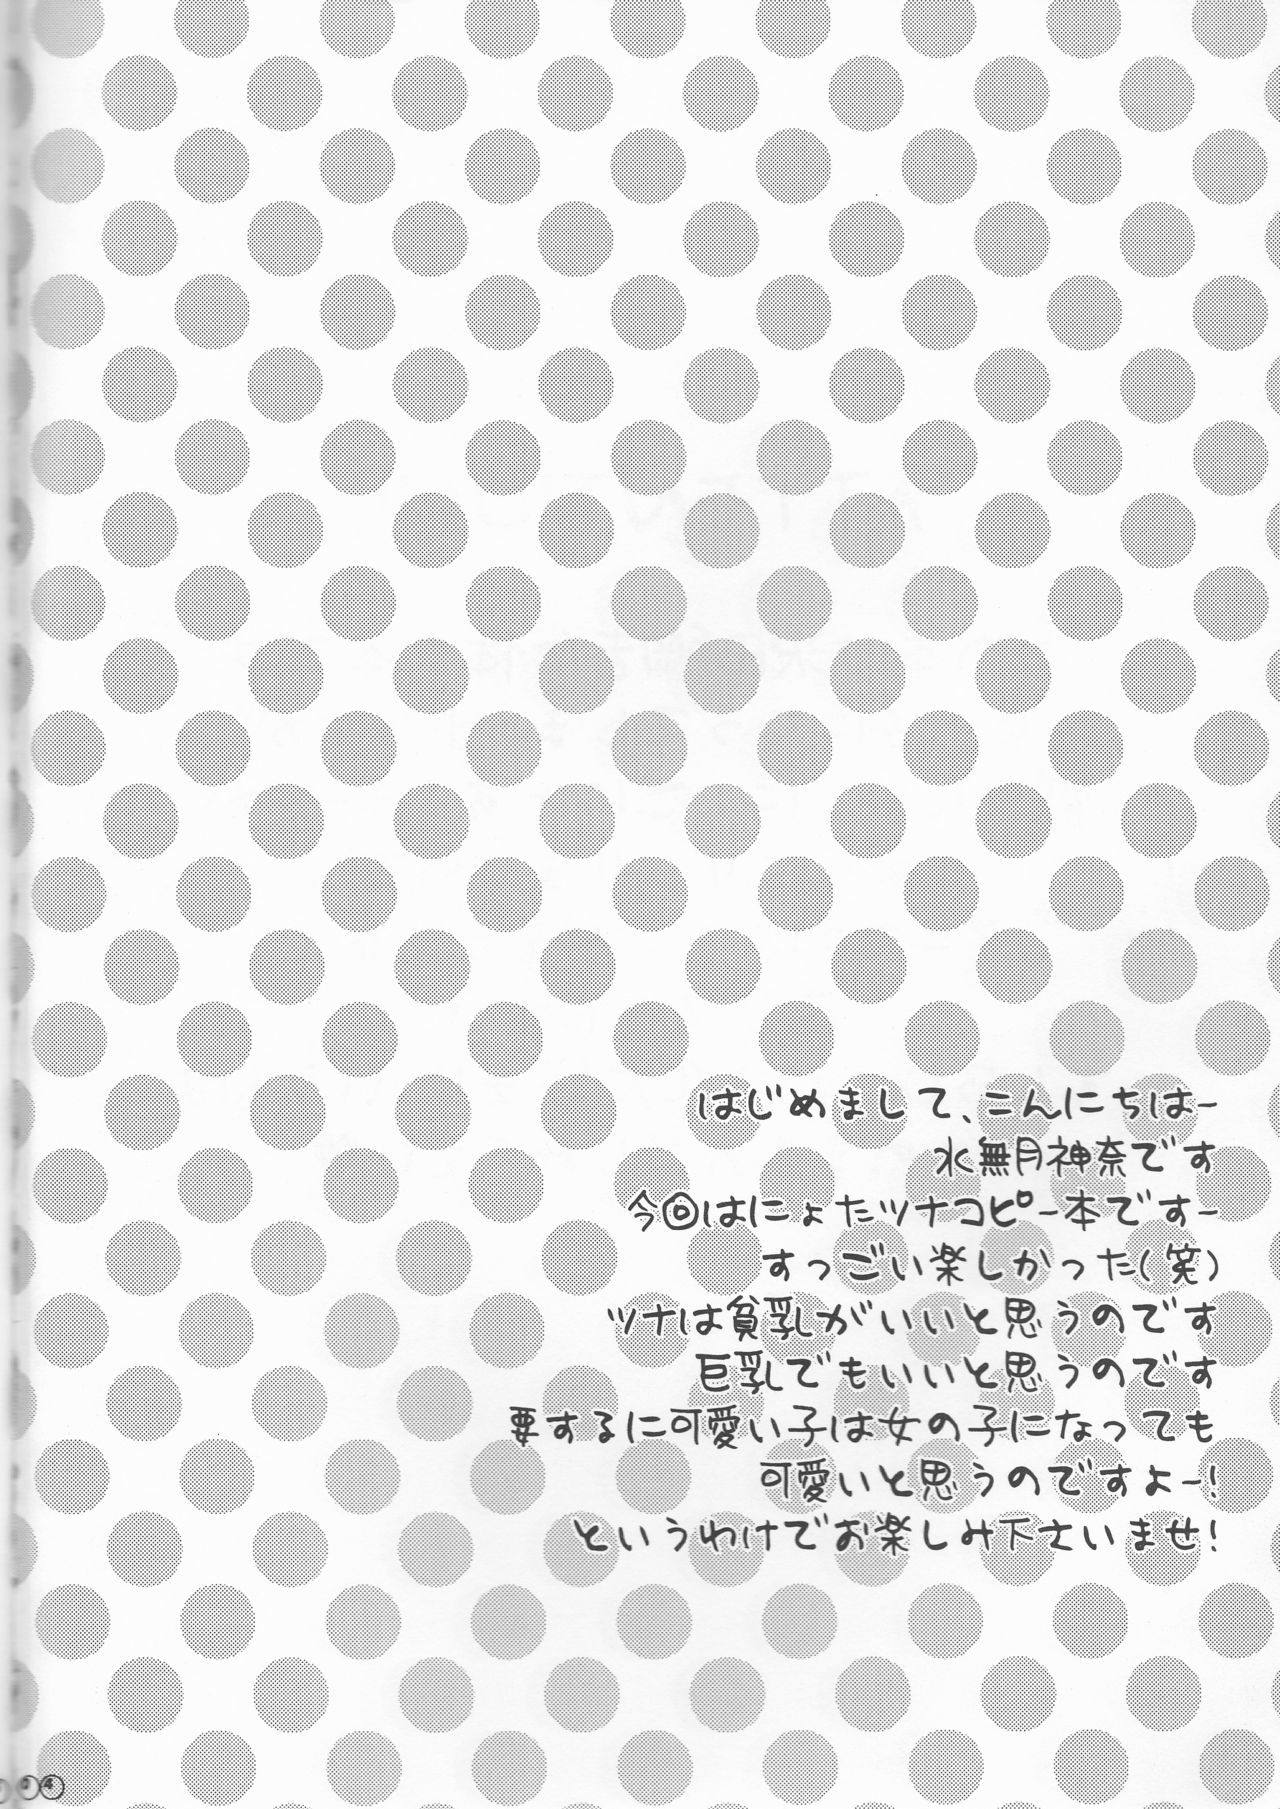 はじめまして、こんにちはー
水無月神奈です
今回はにょたツナコピー本ですー
すっごい楽しかった(笑)
ツナは貧乳がいいと思うのです
巨乳でもいいと思うのです
要するに可愛い子は女の子になっても
可愛いと思うのですよー!
というわけでお楽しみ下さいませ!
4